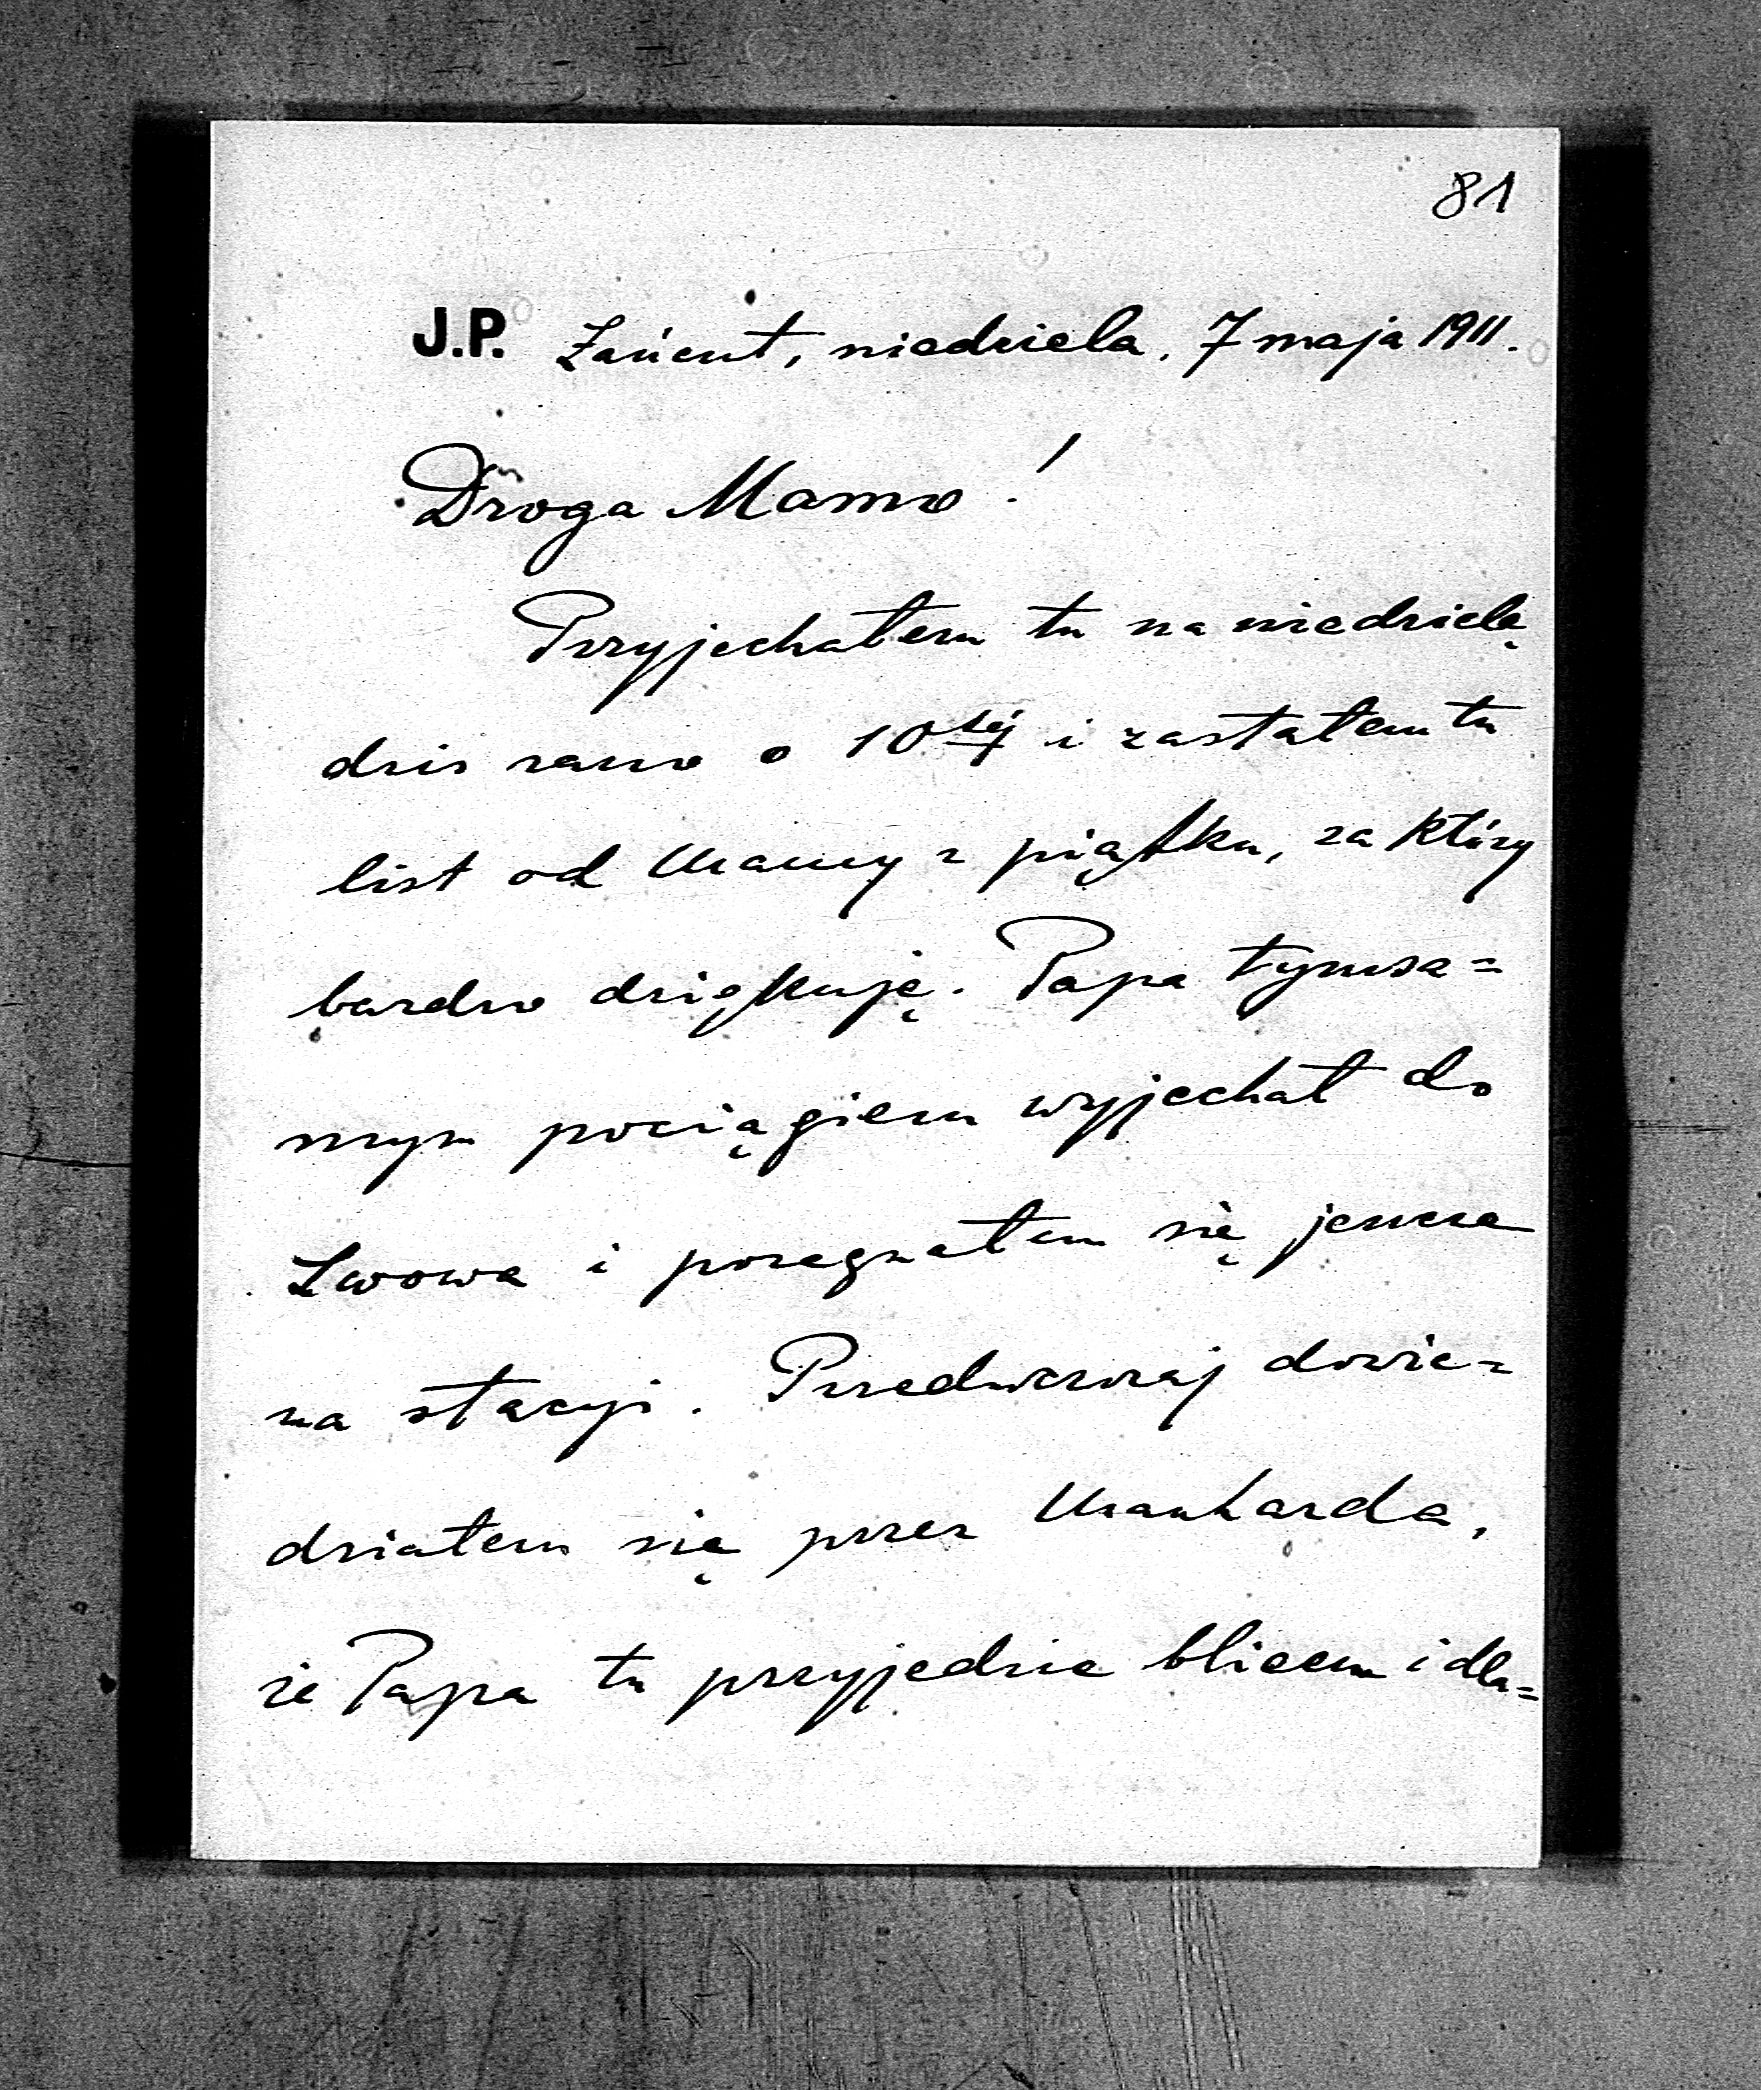 81
J.P. Łańcut, niedziela, 7 maja 1911.
Droga Mamo!
Przyjechałem tu na niedzielę
dziś rano o 10téj i zastałem tu
list od Mamy z piątku, za który
bardzo dziękuję. Papa tymsa=
mym pociągiem wyjechał do
Lwowa i pożegnałem się jeszcze
na stacyi. Przedwczoraj dowie=
działem się przez Manharda,
że Papa tu przyjedzie i dla=